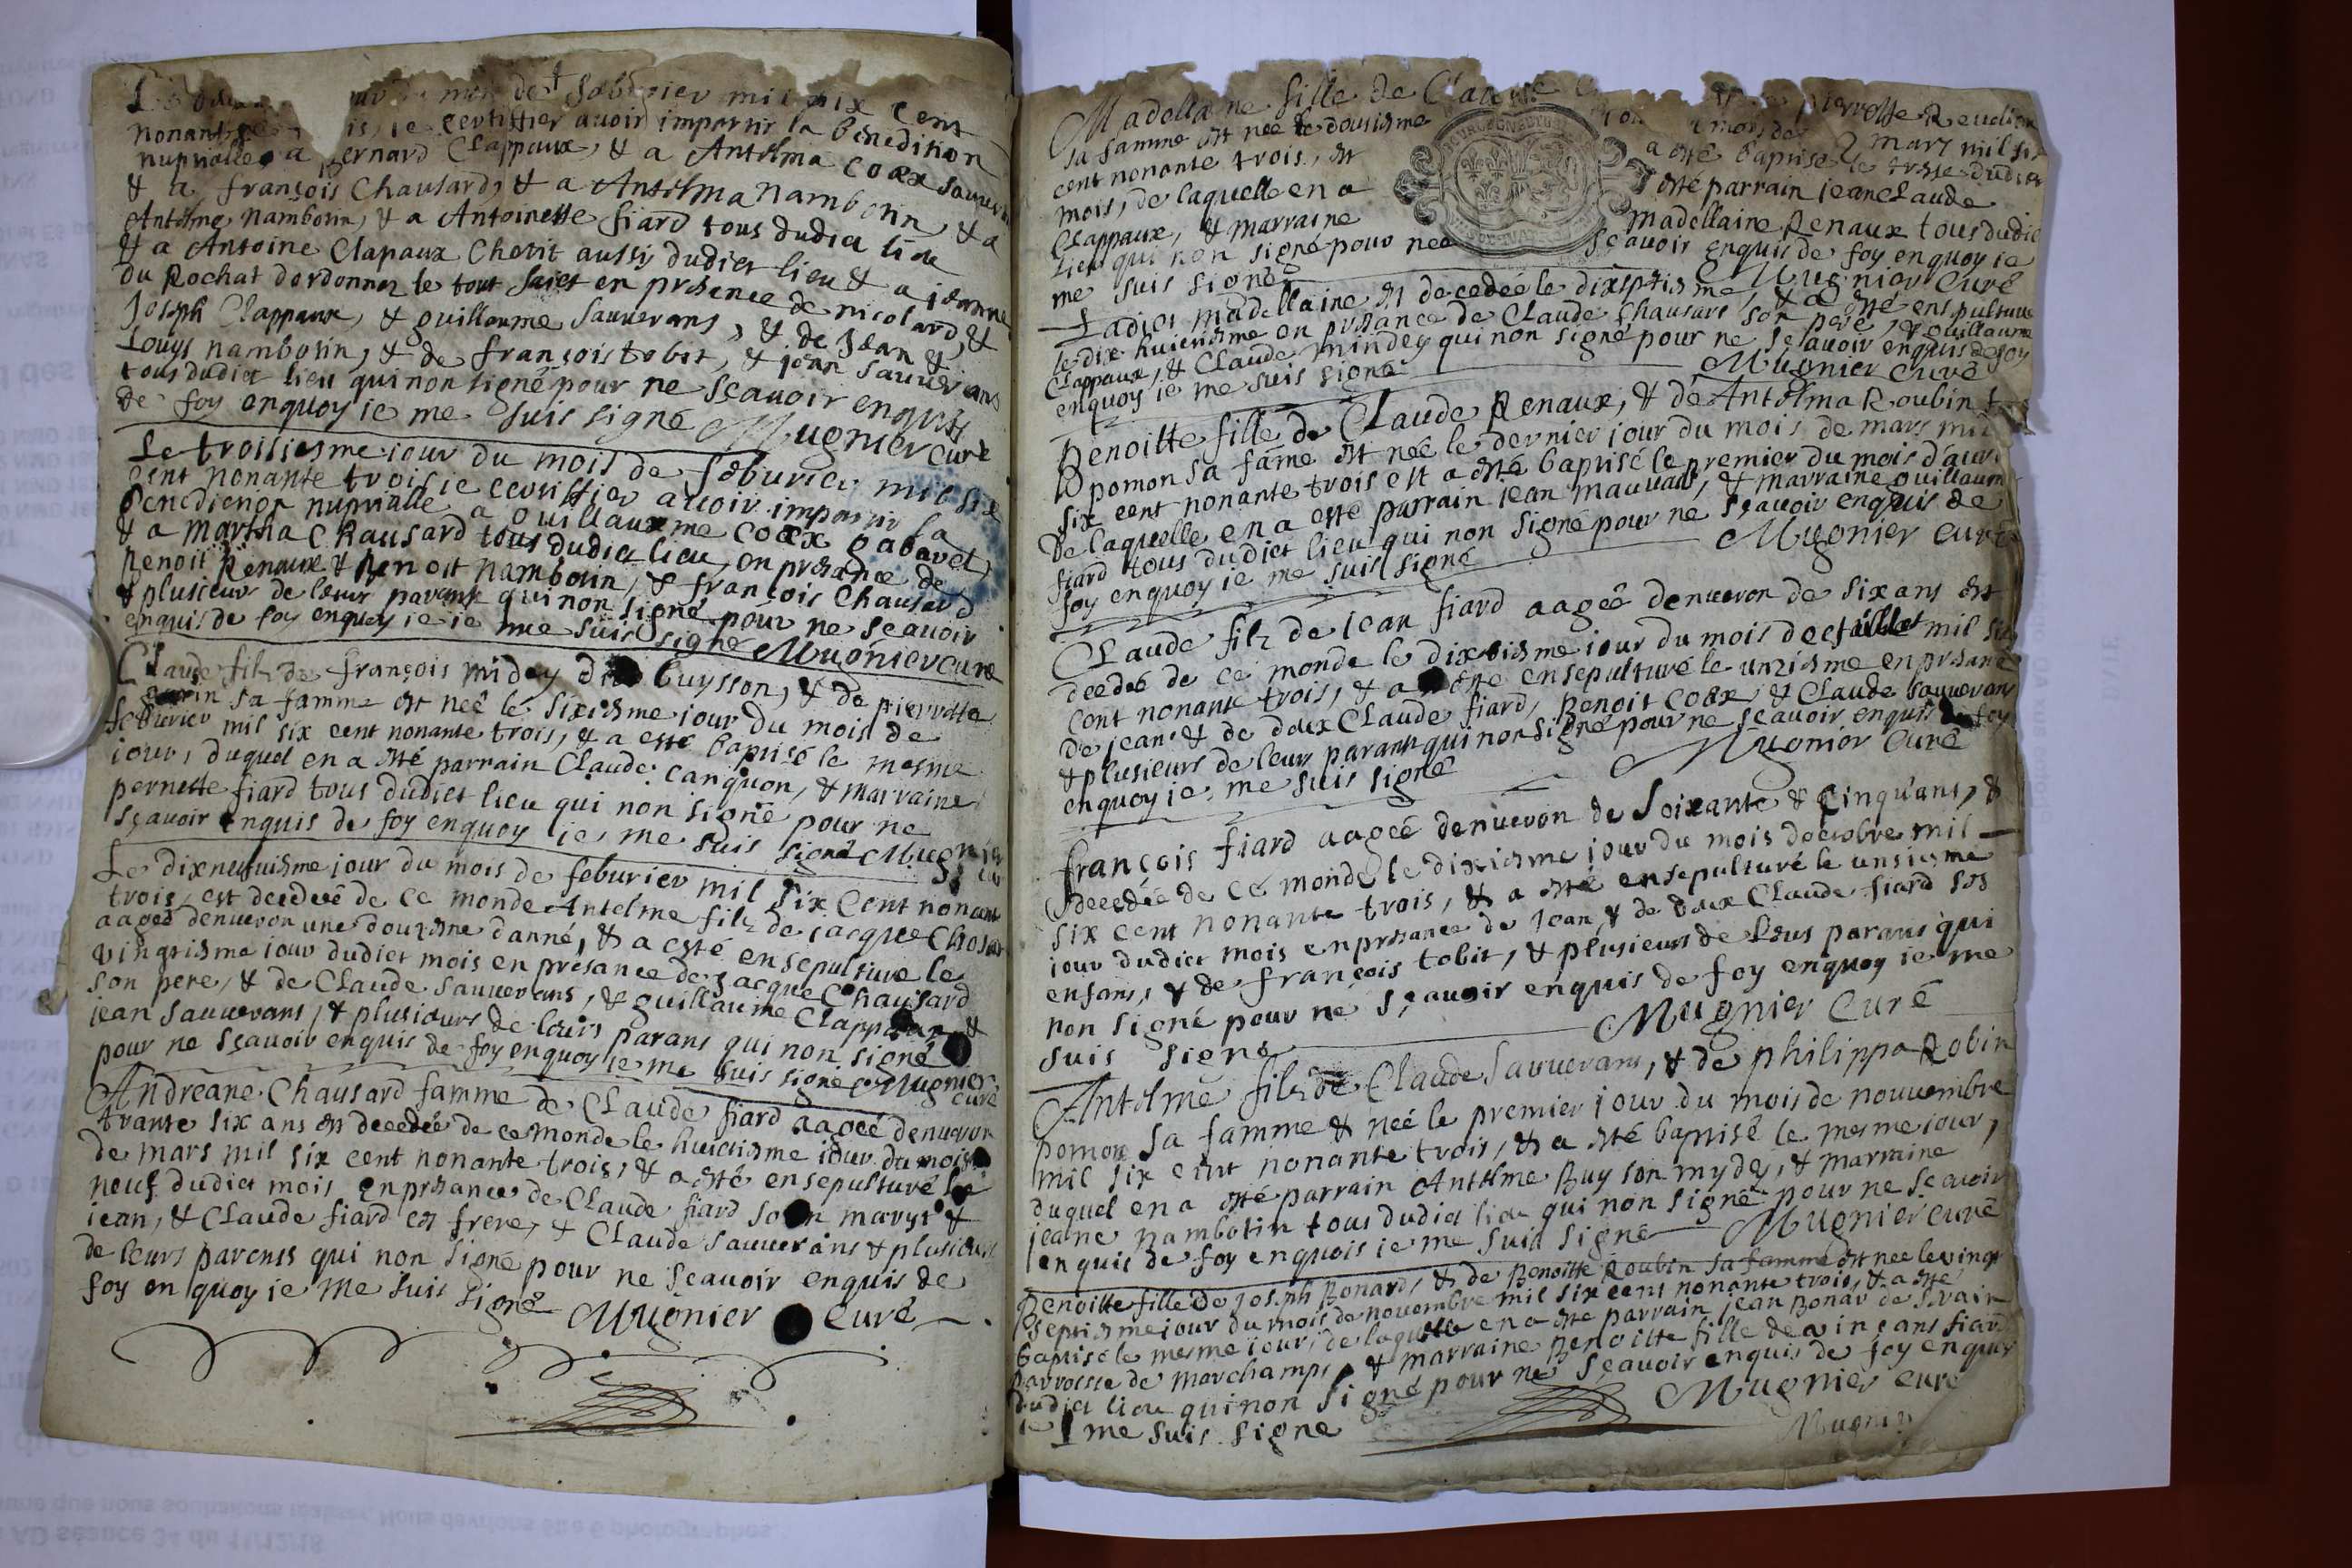 mois de febvrier mil six cent
nonante is, ie certiffier avoir impartir la benediction
nuptialle a Bernard Clappaux, & a Antelma Coex sauveran
& a françois Chausard, & a Antelma nambotin, & a
Antelme nambotin, & a Antoinette fiard tous dudict lieu
& a Antoine Clapaux Chovit aussy dudict lieu & a jeanne
du Rochat dordonnaz le tout faict en presence de nicolard, &
Joseph Clappaux, & guillaume Sauverans, & de Jean &
Louys nambotin, & de françois tobit, & jean sauverans
tous dudict lieu qui non signé pour ne sçavoir enquis
de foy enquoy ie me suis signé Mugnier curé
Le troisiesme iour du mois de feburier mil six
cent nonante trois ie certiffier avoir impartir la
benediction nuptialle a guillauxme Coex gabavet,
& a Martha Chausard tous dudict lieu, en presance de
Benoit Renaux & Benoit nambotin, & françois Chausard
& plusieur de leur parent qui non signé pour ne sçavoir
enquis de foy enquoy ie ie me suis signé Mugnier curé
Claude filz de françois midey dit buysson, & de pierrotte
sa famme est neé le sixiesme iour du mois de
feburier mil six cent nonante trois, & a esté baptisé le mesme
iour, duquel en a esté parrain Claude Canquon, & marraine
pernette fiard tous dudict lieu qui non signé pour ne
sçavoir enquis de foy enquoy ie me suis signé Mugnier
Le dixneufuiesme iour du mois de feburier mil six cent nonante
trois, est decedeé de ce monde Antelme filz de iacque Chosar
aageé denueron une douzaine danné, & a esté ensepulture le
vingtiesme iour dudict mois en présance de Jacque Chausard
son pere, & de Claude Sauverans, & guillaume Clappaux &
jean sauverans, & plusieurs de leurs parans qui non signé
pour ne sçavoir enquis de foy enquoy ie me suis signé Mugnier
curé
Andréane Chausard famme de Claude fiard aageé denueron
trante six ans est decedeé de ce monde le huictiesme iour du mois
de mars mil six cent nonante trois, & a esté ensepulturé le
neuf dudict mois en presance de Claude fiard son mary &
iean, & Claude fiard es frere, & Claude Sauverans & plusieurs
de leurs parents qui non signé pour ne sçavoir enquis de
foy en quoy ie me suis signé Mugnier Curé
Madellaine fille de Claude pierrotte Reudier
sa famme est neé le dousiesme mois de mars mil six
cent nonante trois, & a esté baptisé le trese dudict
mois, de laquelle en a esté parrain jean Claude
Clappaux, & marraine madellaine Renaux tous dudict
lieu qui non signé pour ne sçavoir enquis de foy enquoy ie
me suis signé Mugnier Curé
Ladict madellaine est decedeé le dixseptiesme, & a esté ensepulture
le dix huictiesme en presance de Claude Chausart son pere, & guillaume
Clappaux, & Claude mindey qui non signé pour ne sçavoir enquis de foy
enquoy ie me suis signé Mugnier Curé
Benoitte fille de Claude Renaux, & de Antelma Roubin
pomon sa fame est neé le dernier iour du mois de mars mil
six cent nonante trois est a esté baptisé le premier du mois d'avri
de laquelle en a esté parrain jean mauvais, & marraine guillaum
fiard tous dudict lieu qui non signé pour ne sçavoir enquis de
foy enquoy ie me suis signé Mugnier curé
Claude filz de iean fiard aageé denueron de six ans est
decedeé de ce monde le dixiesme iour du mois de mil six
cent nonante trois, & a esté ensepulturé le unziesme en presance
de jean & de deux Claude fiard, Benoit Coex, & Claude Sauverans
& plusieurs de leur parans qui non signé pour ne sçavoir enquis de foy
enquoy ie me suis signé Mugnier Curé
françois fiard aageé denueron de soixante & cinq'ans, &
decedeé de ce monde le dixiesme iour du mois doctobre mil
six cent nonante trois, & a esté ensepulturé le unsiesme
iour dudict mois en presance de Jean, & de deux Claude fiard ses
enfans, & de françois tobit, & plusieurs de leurs parans qui
non signé pour ne sçavoir enquis de foy enquoy ie me
suis signé Mugnier Curé
Antelme filz de Claude Sauverans, & de philippa Robin
pomon sa famme & neé le premier iour du mois de nouvembre
mil six cent nonante trois, & a esté baptisé le mesme iour,
duquel en a esté parrain Antelme Buyson mydey, & marraine
jeane nambotin tous dudict lieu qui non signé pour ne sçavoir
enquis de foy enquois ie me suis signé Mugnier curé
Benoitte fille de joseph Bonard, & de Benoitte Roubin sa famme est neé le vingt
septiesme iour du mois de nouvembre mil six cent nonante trois, & a esté
baptisé le mesme iour, de laquelle en a esté parrain jean Bonar de
parroisse de marchamps, & marraine Benoitte fille de vinçans fiard
dudict lieu qui non signé pour ne sçavoir enquis de foy enquoy
ie me suis signé Mugnier curé